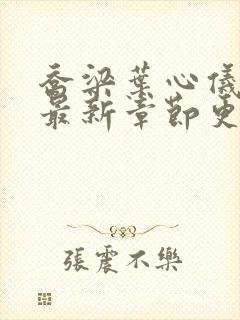 喬梁葉心儀
最新章節更
張震不樂